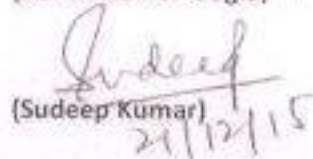 Sudeep
(Sudeep Kumar)
21/12/15